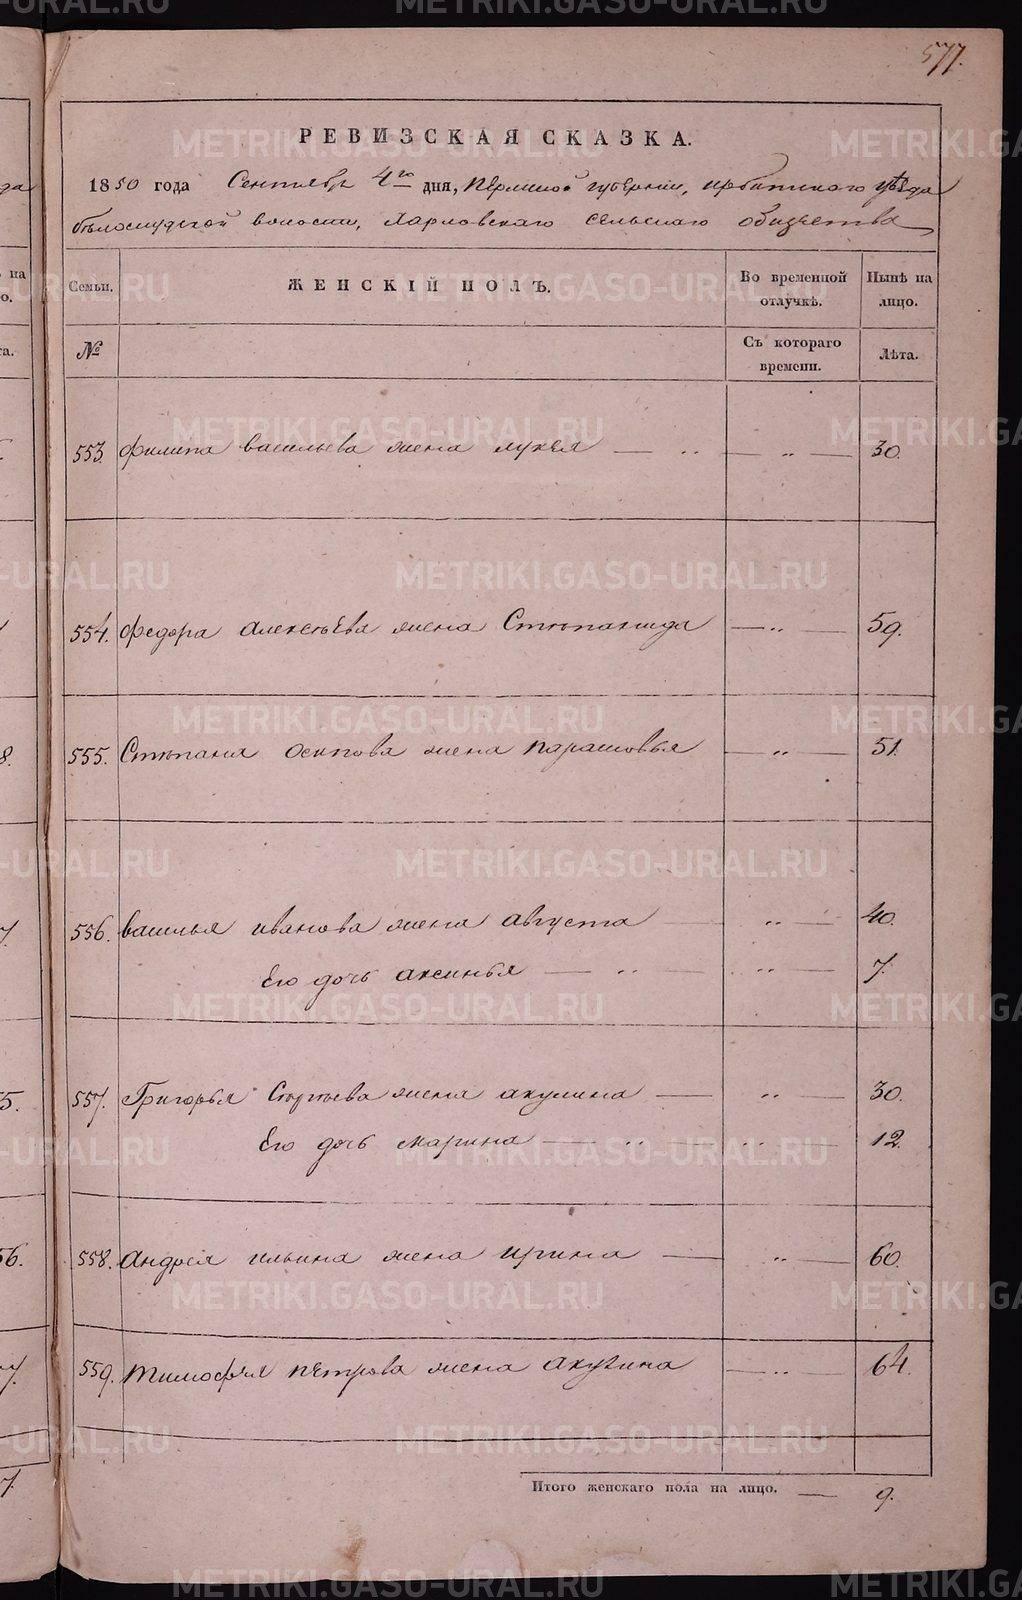 577.
РЕВИЗСКАЯ СКАЗКА.
1850 года Сентября 4го дня, Пермской губернии, ирбитского уѣзда
бѣлослудской волости, Харловскаго сельскаго общества
Семьи. ЖЕНСКІЙ ПОЛЪ. Во временной отлучкѣ. Нынѣ на лицо.
№ Съ котораго времени. Лѣта.
553. филипа васильева жена лукея — „ — „ — 30.
554. федора алексѣева жена Стѣпанида — „ — 59.
555. Стѣпана осипова жена парасковья — „ — 51.
556. василья иванова жена августа — „ — 40.
Его дочь аксинья — „ — „ — 7.
557. Григорья Сергѣева жена акулина — „ — 30.
Его дочь марина — „ „ — 12.
558. андрея ильина жена ирина — „ — 60.
559. тимофея пѣтрова жена акулина — „ — 64.
Итого женскаго пола на лицо. — 9.
METRIKI.GASO-URAL.RU